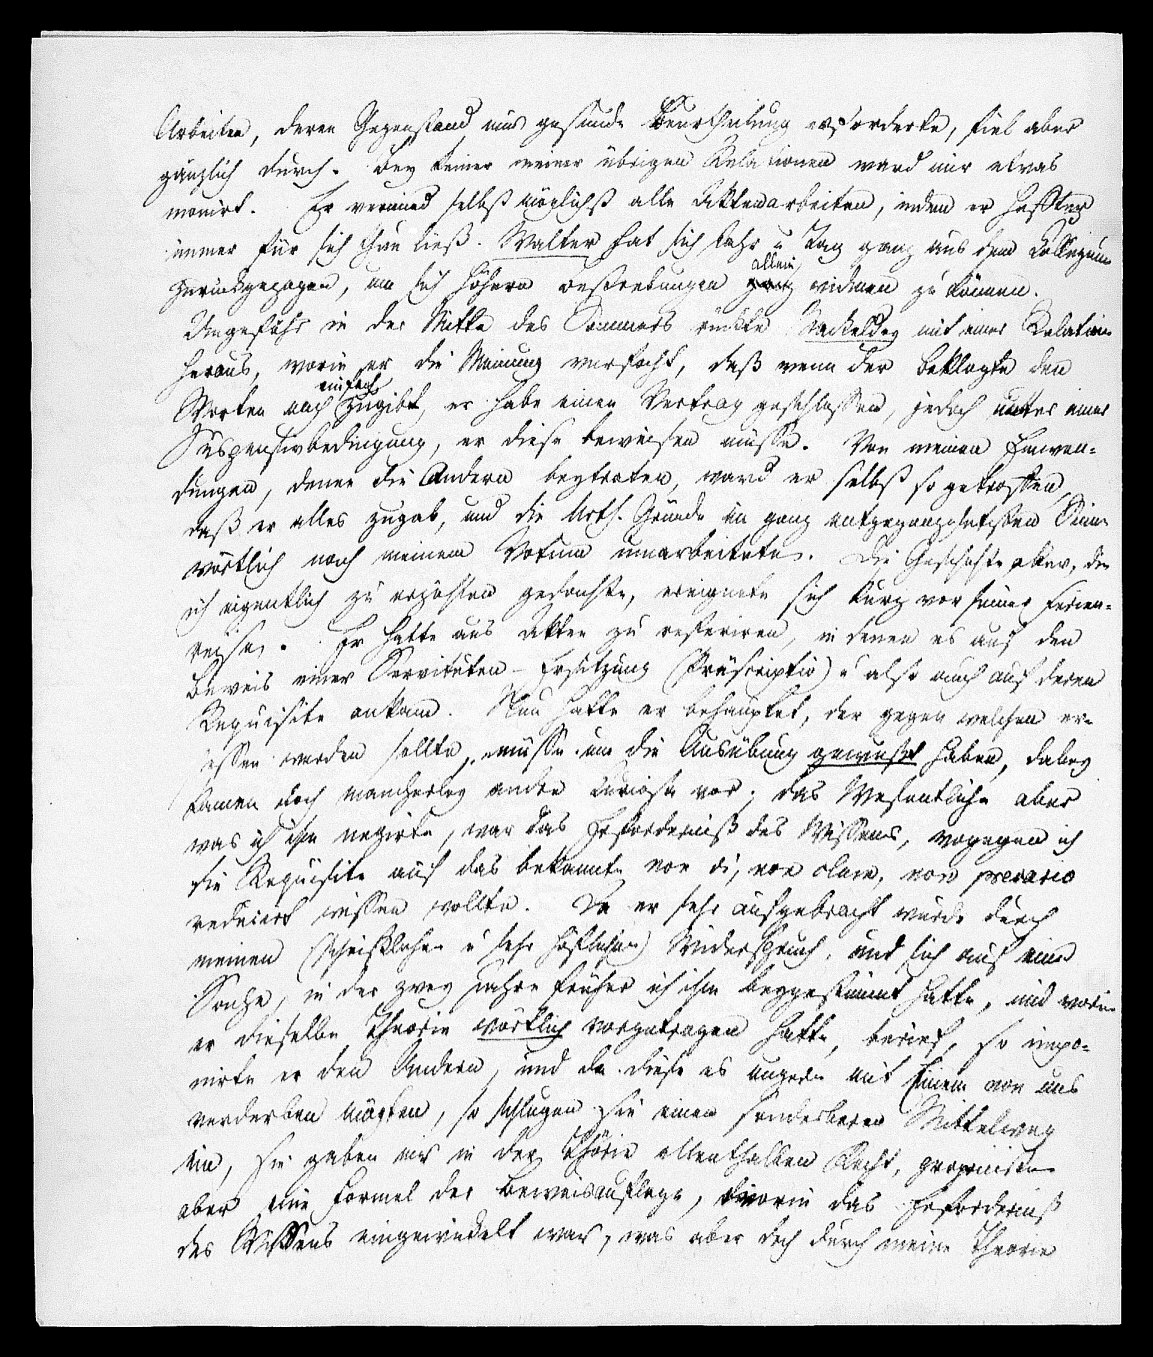 Arbeiten, deren Gegenstand nur gesunde Beurtheilung erforderte, fiel aber
gänzlich durch. Bey keiner meiner übrigen Relationen ward mir etwas
monirt. Er vermied selbst möglichst alle Aktenarbeiten, indem er
immer für sich thun ließ. Walter hat sich Jahr u Tag ganz aus dem Collegium
zurückgezogen, um sich höhern Bestrebungen allein widmen zu können.
Ungefähr in der Mitte des Sommers rückte Mackeldey mit einer Relation
heraus, worin er die Meinung verfocht, daß wenn der Beklagte den
Worten nach einfach zugibt, er habe einen Vertrag geschlossen, jedoch unter einer
Suspensivbedingung, er diese beweisen müsse. Von meinen Einwen-
dungen, denen die Andern beytraten, ward er selbst so getroffen
daß er alles zugab, und die Urth. Gründe im ganz entgegengesetzten Sinne
wörtlich nach meinem Votum umarbeitete. Die Geschichte aber, die
ich eigentlich zu erzählen gedachte, ereignete sich kurz vor seiner Ferien-
reise. Er hatte aus Akten zu referiren, in denen es auf den
Beweis einer Servituten-Ersitzung (Präscriptio) u also auch auf deren
Requisite ankam. Nun hatte er behauptet, der gegen welchen er-
sessen werden sollte, müsse um die Ausübung gewußt haben, dabey
kamen noch mancherley andre Curiosa vor; das Wesentliche aber
was ich ihm negirte, war das Erforderniß des Wissens, wogegen ich
die Requisite auf das bekannte non vi, non clam, non precario
reducirt wissen wollte. Da er sehr aufgebracht wurde durch
meinen (schriftlichen u sehr höflichen) Widerspruch, und sich auf eine
Sache, in der zwey Jahre früher ich ihm beygestimmt hatte, und worin
er dieselbe Theorie wörtlich vorgetragen hatte, berief, so impo-
nirte er den Andern, und da diese es ungern mit Einem von uns
verderben mögten, so schlugen sie einen sonderbaren Mittelweg
ein, sie gaben mir in der Theorie allenthalben Recht, proponirten
aber eine Formel der Beweisauflage, worin das Erforderniß
des Wissens eingewickelt war, was aber doch durch meine Theorie